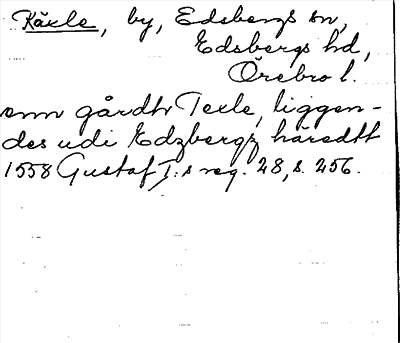 Käxle, by, Edsbergs sn,
Edsbergs hd,
Örebro l.
enn gårdtt Texle, liggen-
des udi Edzbergz häredtt
1558 Gustaf I:s reg. 28, s. 256.